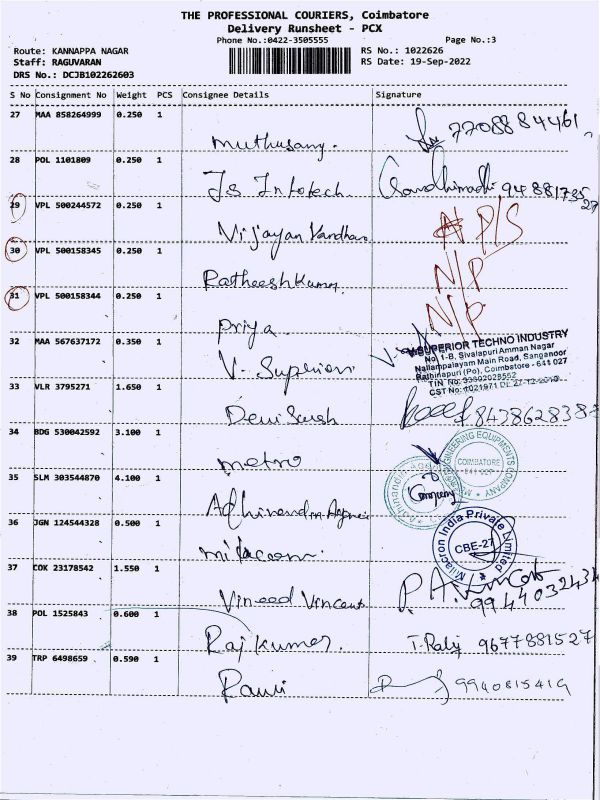 THE PROFESSIONAL COURIERS, Coimbatore
Delivery Runsheet - PCX
Phone No.:0422-3505555 Page No.:3
Route: KANNAPPA NAGAR RS No.: 1022626
Staff: RAGUVARAN RS Date: 19-Sep-2022
DRS No.: DCJB102262603
S No Consignment No Weight PCS Consignee Details Signature
27 MAA 858264999 0.250 1
muthusamy. 7708884461
28 POL 1101809 0.250 1
Js Infotech Gandhimadhi 9488173527
29 VPL 500244572 0.250 1
Vijayan Vardhan P/S
30 VPL 500158345 0.250 1
Ratheesh Kumar N/P
31 VPL 500158344 0.250 1
Priya N/P
32 MAA 567637172 0.350 1
V- Superior V-SUPERIOR TECHNO INDUSTRY
No. 1-B, Sivalapuri Amman Nagar
Nallampalayam Main Road, Sanganoor
Rathinapuri (Po), Coimbatore - 641 027
TIN No: 33902028552
CST No: 1021971 Dt. 27-12-2010
33 VLR 3795271 1.650 1
8438628387
34 BDG 530042592 3.100 1
metro ENGINEERING EQUIPMENTS COMPANY
COIMBATORE
641 027
35 SLM 303544870 4.100 1
Company
36 JGN 124544328 0.500 1
milacron. Milacron India Private Limited
CBE-27
37 COK 23178542 1.550 1
Vineed Vincent P.A. Vincent
9944032434
38 POL 1525843 0.600 1
Raj Kumar. T. Raly 9677881527
39 TRP 6498659 0.590 1
Ravi 9940815419